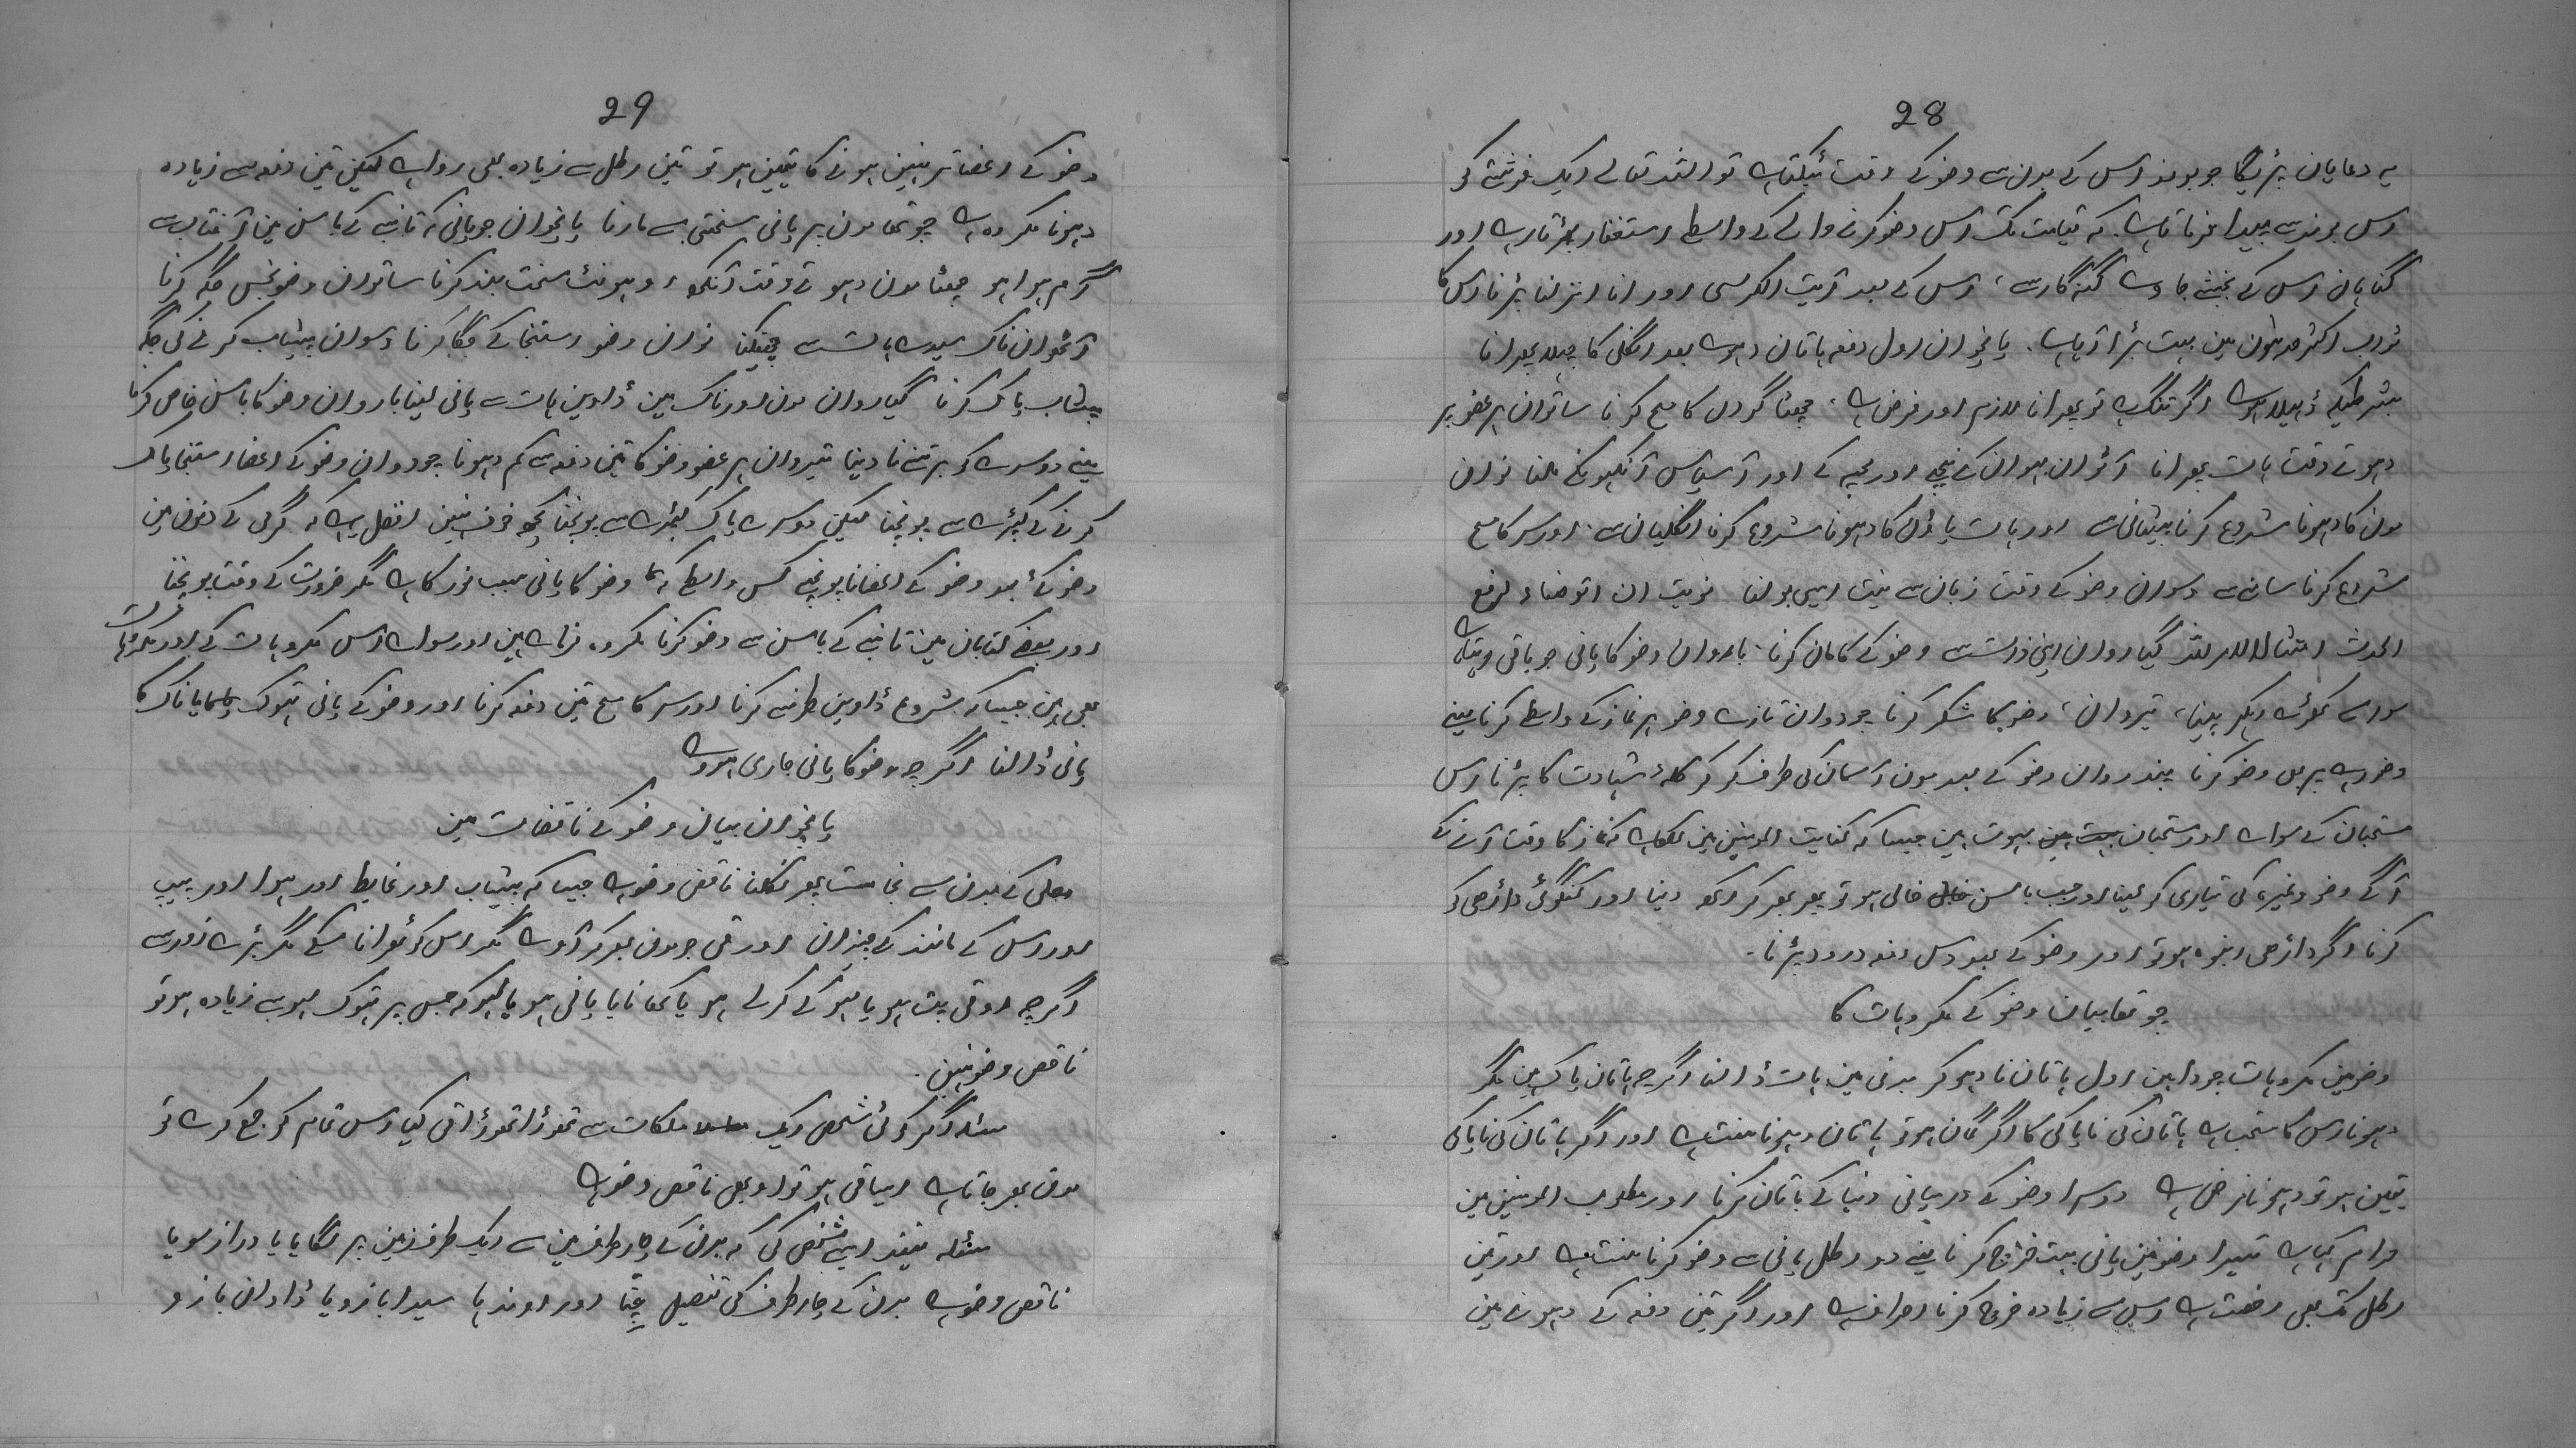 28
یہ دعایان پڑیگا جو بوند اس کے بدن سے وضو کے وقت ٹپکتا ہے تو اللہ تعالے ایک فرشتے کو
اس بوند سے پیدا فرماتا ہے کہ قیامت تک اس وضو کرنے والے کے واسطے استغفار پڑتا رہے اور
گناہان اس کے بخشے جاوے گنہگار سے، اس کے بعد آیت الکرسی اور انا انزلنا پڑنا اس کا
ثواب اکثر حدیثون مین بہت بڑا آیا ہے. پانچوان اول دفعہ ہاتان دہوے بعد انگلی کا چھلا پھرانا
بشرطیکہ ڈھیلا ہوے اگر تنگ ہے تو پھرانا لازم اور فرض ہے، چھٹا گردن کا مسح کرنا ساتوان ہر عضو پر
دہوتے وقت ہات پھرانا آٹوان بھوان کے نیچے اور کے اور آسپاس آنکھونکے ملنا نوان
مون کا دہونا شروع کرنا پیشانی سے اور ہات پاؤن کا دہونا شروع کرنا انگلیان سے، اور سر کا مسح
شروع کرنا سامنے سے دسوان وضو کے وقت زبان سے نیت ایسی بولنا نویت ان اتوضاء لرفع
الحدث امتثالا لامر اللہ گیاروان اپنی ذات سے وضو کے کامان کرنا، باروان وضو کا پانی جو باقی رہتا ہے
سو اسے کھڑے رہکر پینا، تیروان، وضو کا شکر کرنا چودوان تازے وضو ہر نماز کے واسطے کرنا یعنے
وضو رہے پر بھی وضو کرنا پندروان وضو کے بعد مون آسمان کی طرف کر کر کلمۂ شہادت کا پڑنا اس
مستحبان کے سواے اور مستحبان بہوت ہین جیسا کہ کفایت المومنین مین لکھا ہے کہ نماز کا وقت آنے کے
آگے وضو وغیرہ کی تیاری کو لینا اور جب باسن خالی ہو تو پھر بھر کر رکھ دینا اور کنگوئی داڑھی کو
کرنا اگر داڑھی انبوہ ہو تو اور وضو کے بعد دس دفعہ درود پڑنا.
چوتھا بیان وضو کے مکروہات کا
وضو مین مکروہات چودا ہین اول ہاتان نا دہو کر بدنی مین ہات ڈالنا اگرچہ ہاتان پاک ہین مگر
دہونا اس کا مستحب ہے ہاتان کی ناپاکی کا اگر گمان ہو تو ہاتان دہونا سنت ہے اور اگر ہاتان کی ناپاکی
یقین ہو تو دہونا فرض ہے دوسرا وضو کے درمیانی دنیا کے باتان کرنا اور مطلوب المومنین مین
حرام کہا ہے تیسرا وضو مین پانی بہت خرچ کرنا یعنے دو رطل پانی سے وضو کرنا سنت ہے اور تین
رطل تک بھی رخصت ہے اس سے زیادہ خرچ کرنا اسراف ہے اور اگر تین دفعہ کے دہونے مین
29
وضو کے اعضا تر نہین ہونے کا یقین ہو تو تین رطل سے زیادہ بھی روا ہے لیکن تین دفعہ سے زیادہ
دہونا مکروہ ہے چوتھا مون پر پانی سختی سے مارنا پانچوان جو پانی کہ تانبے کے باسن مین آفتاب سے
گرم ہوا ہو چھٹا مون دہوتے وقت آنکھ و ہونٹ سخت بند کرنا ساتوان وضو نجس جگہ کرنا
آٹھوان ناک سیدے ہات سے چھنکنا نوان وضو استنجا کے جگا کرنا دسوان پیشاب کرنے کی جگہ
پیشاب پاک کرنا گیاروان مون اور ناک مین ڈاوین ہات سے پانی لینا باروان وضو کا باسن خاص کرنا
یعنے دوسرے کو برتنے نا دینا تیروان ہر عضو وضو کا تین دفعہ سے کم دہونا چودوان وضو کے اعضا استنجا پاک
کرنے کے کپڑے سے پونچنا لیکن دوسرے پاک کپڑے سے پونچنا کچھ خوف نہین افضل یہ ہے کہ گرمی کے دنون مین
وضو کے بعد وضو کے اعضا نا پونچے کس واسطے کہ وضو کا پانی سبب نور کا ہے مگر ضرورت کے وقت پونچنا
اور بعضے کتابان مین تانبے کے باسن سے وضو کرنا مکروہ فرماے ہین اور سواے اس مکروہات کے اور مکروہات
بھی ہین جیسا کہ شروع ڈاوین طرف سے کرنا اور سر کا مسح تین دفعہ کرنا اور وضو کے پانی تھوک یا ناک کا
پانی ڈالنا اگرچہ وضو کا پانی جاری ہووے
پانچوان بیان وضو کے ناقضات مین
مصلی کے بدن سے نجاست بھر نکلنا ناقض وضو ہے جیسا کہ پیشاب اور غایط اور ہوا اور پیپ
اور اس کے مانند کے چیزان اور قی جو مون بھر کر آوے مگر اس کو تھوانا سکے مگر بڑے زور سے
اگرچہ او قی پت ہو یا لہو کے کرلے ہو یا کھانا یا پانی ہو یا لہو کہ جس پر تھوک لہو سے زیادہ ہو تو
ناقص وضو نہین.
مسئلہ اگر کوئی شخص ایک مکان سے تھوڑا تھوڑا قی کیا اس تمام کو جمع کرے تو
مون بھر جاتا ہے ایسا قی ہو تو او بھی ناقص وضو ہے
مسئلہ نیند ایسے شخص کی کہ بدن کے چار طرف مین سے ایک طرف زمین پر لگایا یا دراز سویا
ناقص وضو ہے بدن کے چار طرف کی تفصیل چتا اور اوندہا سیدا بازو یا ڈاوان بازو